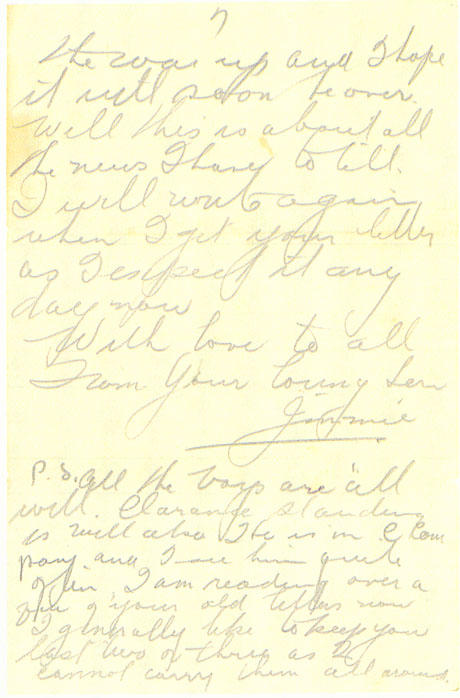 7
the war is up and I hope
it will soon be over.
Well this is about all
the news I have to tell.
I will write again
when I get your letter
as I expect it any
day now
With love to all
From Your loving Son
Jimmie
P.S. all the boys are all
well. Clarance Standing
is well also He is in C Com
pany and I see him quite
often I am reading over a
few of your old letters now
I generally like to keep your
last two or three as I
cannot carry them all around.